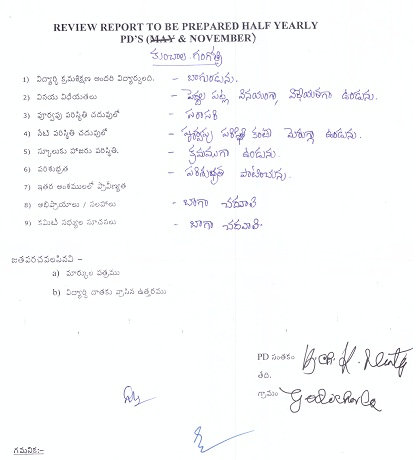 REVIEW REPORT TO BE PREPARED HALF YEARLY
PD'S (MAY & NOVEMBER)
కుంబాల గంగోత్రి
1) విద్యార్థి క్రమశిక్షణ అందరి విద్యార్థులది. - బాగుండును.
2) వినయ విధేయతలు - పెద్దల పట్ల వినయంగా విధేయతగా ఉండును.
3) పూర్వపు పరిస్థితి చదువులో - సరాసరి
4) నేటి పరిస్థితి చదువులో - పూర్వపు పరిస్థితి కంటె మెరుగ్గా ఉండును.
5) స్కూలుకు హాజరు పరిస్థితి. - క్రమముగా ఉండును.
6) పరిశుభ్రత - పరిశుభ్రత పాటించును.
7) ఇతర అంశములలో ప్రావీణ్యత
8) అభిప్రాయాలు / సలహాలు - బాగా చదవాలి
9) కమిటి సభ్యుల సూచనలు - బాగా చదవాలి.
జతపరచవలసినవి –
a) మార్కుల పత్రము
b) విద్యార్థి దాతకు వ్రాసిన ఉత్తరము
PD సంతకం
తేది.
గ్రామం Godicherla
గమనిక:–